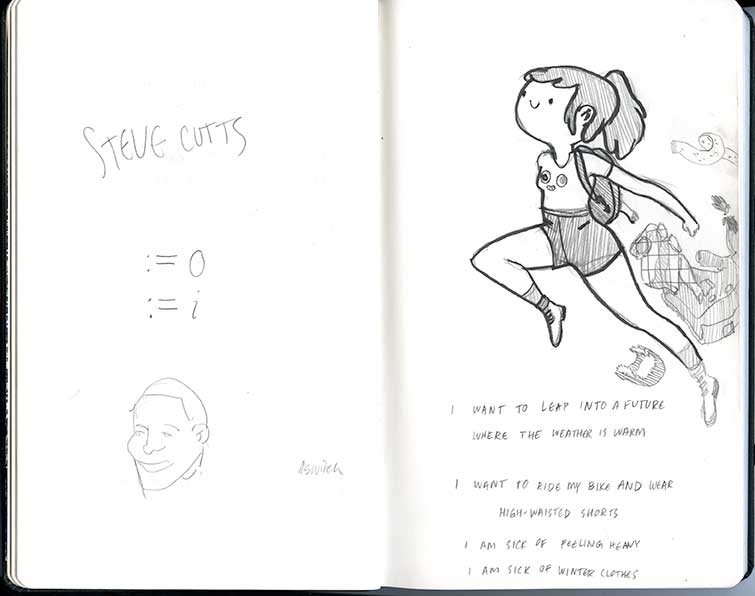 STEVE CUTTS
:= 0
:= i
I WANT TO LEAP INTO A FUTURE
WHERE THE WEATHER IS WARM
I WANT TO RIDE MY BIKE AND WEAR
HIGH-WAISTED SHORTS
I AM SICK OF FEELING HEAVY
I AM SICK OF WINTER CLOTHES